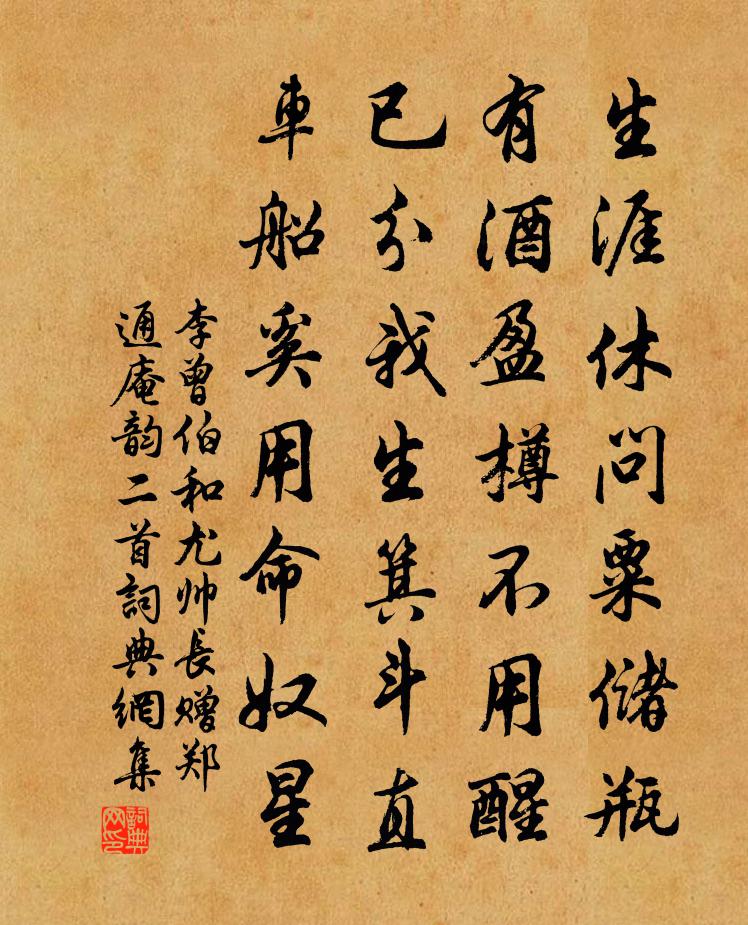 生涯休問粟儲瓶
有酒盈樽不用醒
已分我生箕斗直
車船奚用命奴星
李曾伯和尤帅長赠郑
通庵韵二首詞典網集
詞典网印